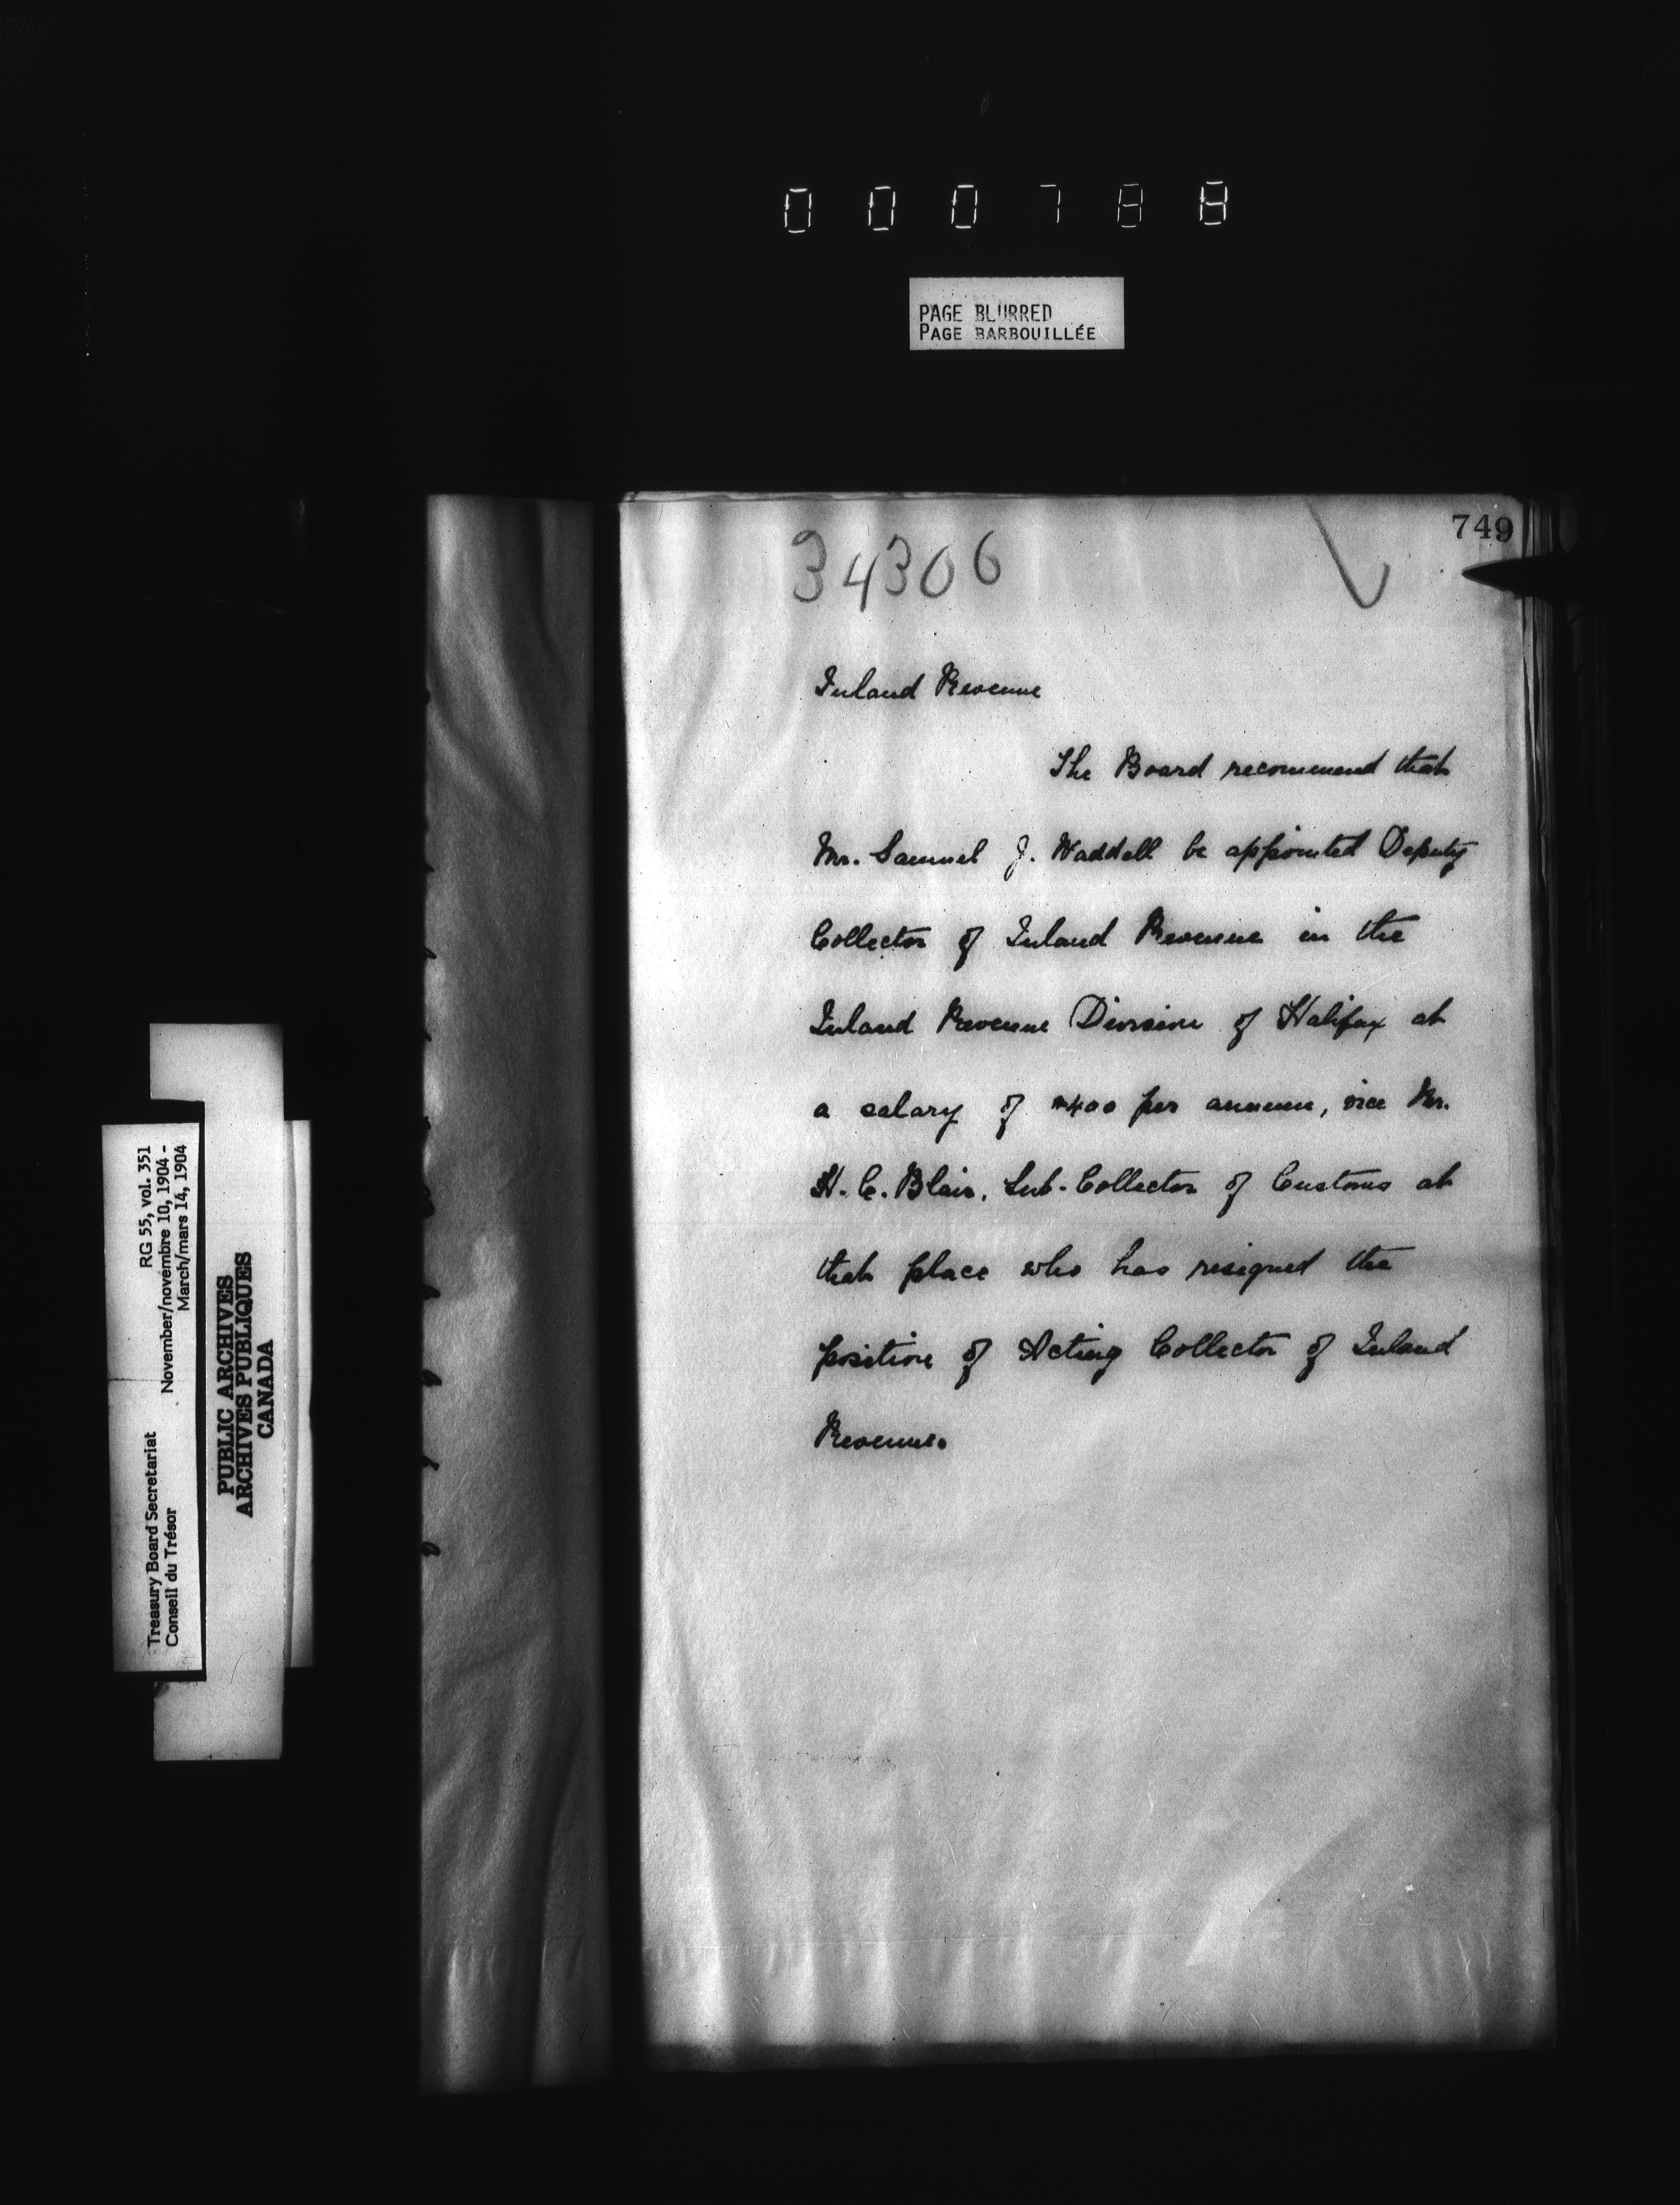 000788
PAGE BLURRED
PAGE BARBOUILLÉE
749
34306
Inland Revenue
The Board recommend that
Mr. Samuel J. Waddell be appointed Deputy
Collector of Inland Revenue in the
Inland Revenue Division of Halifax at
a salary of $400 per annum, vice Mr.
H. C. Blair, Sub-Collector of Customs at
that place who has resigned the
position of Acting Collector of Inland
Revenue.
Treasury Board Secretariat RG 55, vol. 351
Conseil du Trésor November/novembre 10, 1904 -
March/mars 14, 1904
PUBLIC ARCHIVES
ARCHIVES PUBLIQUES
CANADA